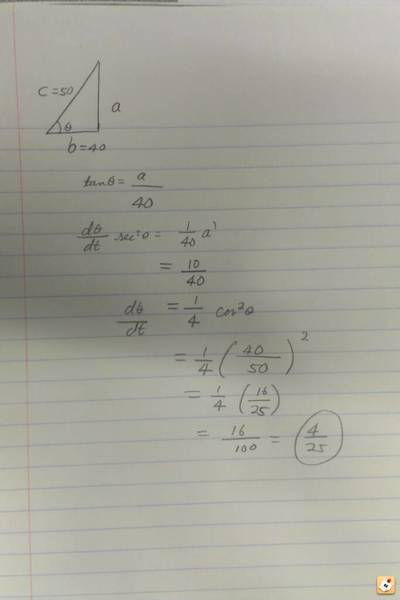 c=50
a
θ
b=40
tanθ = a/40
dθ/dt sec²θ = 1/40 a'
= 10/40
dθ/dt = 1/4 cos²θ
= 1/4 (40/50)²
= 1/4 (16/25)
= 16/100 = 4/25